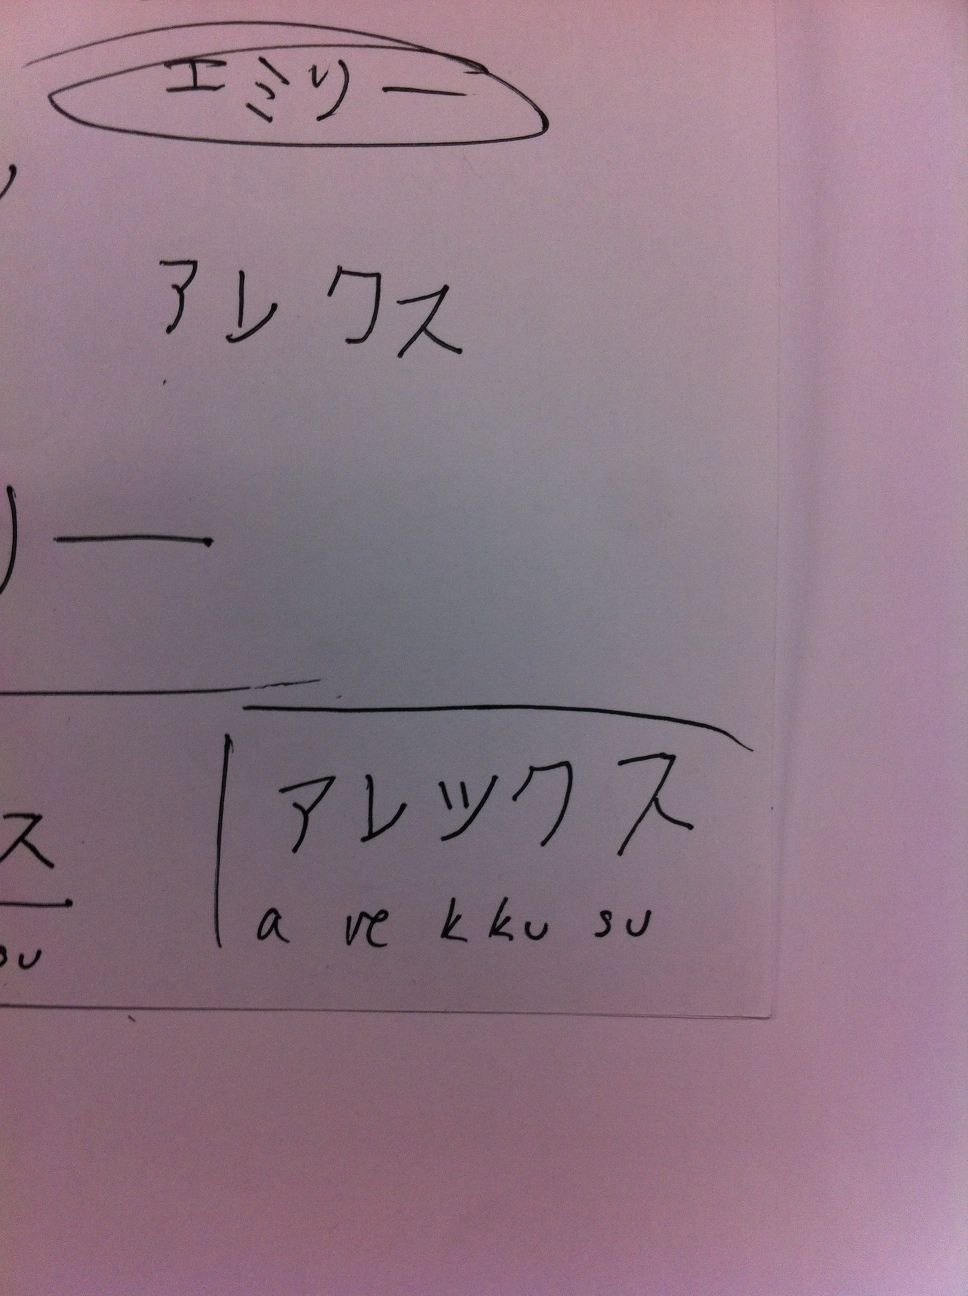 エミリー
アレクス
リー
ス アレックス
su a re k ku su